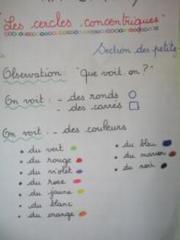 "Les cercles concentriques"
Section des petits
Observation: "Que voit on?"
On voit: - des ronds
- des carrés
On voit: - des couleurs
• du vert
• du rouge
• du violet
• du rose
• du jaune
• du blanc
• du orange
• du bleu
• du marron
• du noir